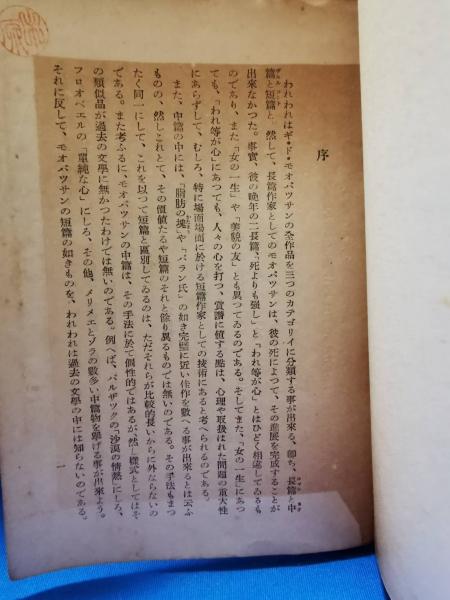 序
われわれはギ・ド・モオパツサンの全作品を三つのカテゴリイに分類する事が出來る、卽ち、長篇と中
篇と短篇と。然して、長篇作家としてのモオパツサンは、彼の死によつて、その進展を完成することが
出來なかつた。事實、彼の晩年の二長篇、「死よりも强し」と「われ等が心」とはひどく相違してゐるも
のであり、また「女の一生」や「美貌の友」とも異つてゐるのである。そしてまた、「女の一生」にあつ
ても、「われ等が心」にあつても、人々の心を打つ、賞讚に値する點は、心理や取扱はれた問題の重大性
にあらずして、むしろ、特に場面場面に於ける短篇作家としての技術にあると考へられるのである。
また、中篇の中には、「脂肪の塊」や「パラン氏」の如き完璧に近い佳作を數へる事が出來るとは云ふ
ものの、然しこれとて、その價値たるや短篇のそれと餘り異るものでは無いのである。その手法もまつ
たく同一にして、これを以つて短篇と區別してゐるのは、ただそれらが比較的長いからに外ならないの
である。また考ふるに、モオパツサンの中篇は、その手法に於て個性的ではあるが、然し樣式としてはそ
の類似品が過去の文學に無かつたわけでは無いのである。例へば、バルザツクの「沙漠の情熱」にしろ、
フロオベエルの「單純な心」にしろ、その他、メリメエとゾラの數多い中篇物を擧げる事が出來よう。
それに反して、モオパツサンの短篇の如きものを、われわれは過去の文學の中には知らないのである。
一